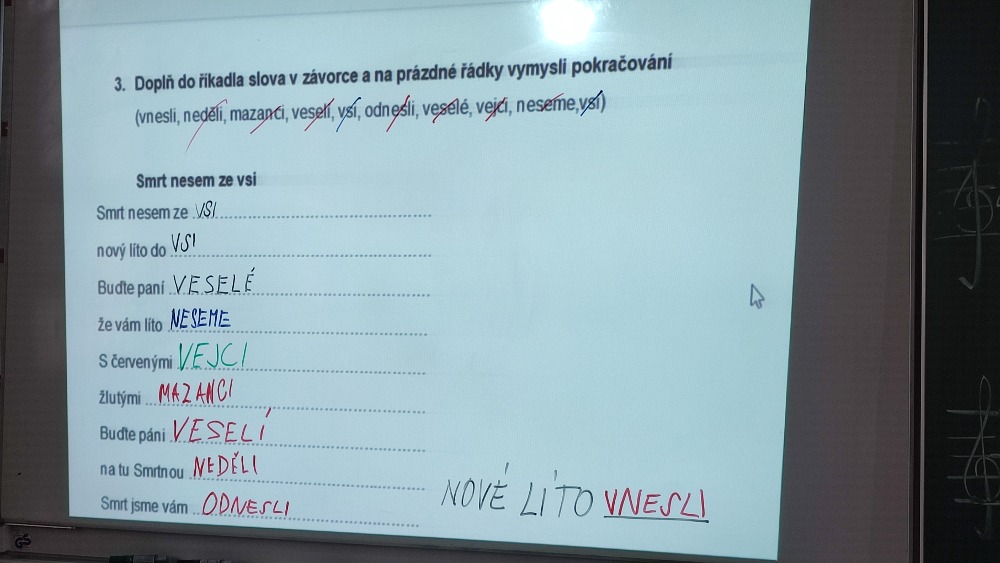 3. Doplň do říkadla slova v závorce a na prázdné řádky vymysli pokračování
(vnesli, neděli, mazanci, veselí, vsí, odnesli, veselé, vejci, neseme,vsí)
Smrt nesem ze vsi
Smrt nesem ze VSI
nový líto do VSI
Buďte paní VESELÉ
že vám líto NESEME
S červenými VEJCI
žlutými MAZANCI
Buďte páni VESELÍ
na tu Smrtnou NEDĚLI
Smrt jsme vám ODNESLI
NOVÉ LÍTO VNESLI